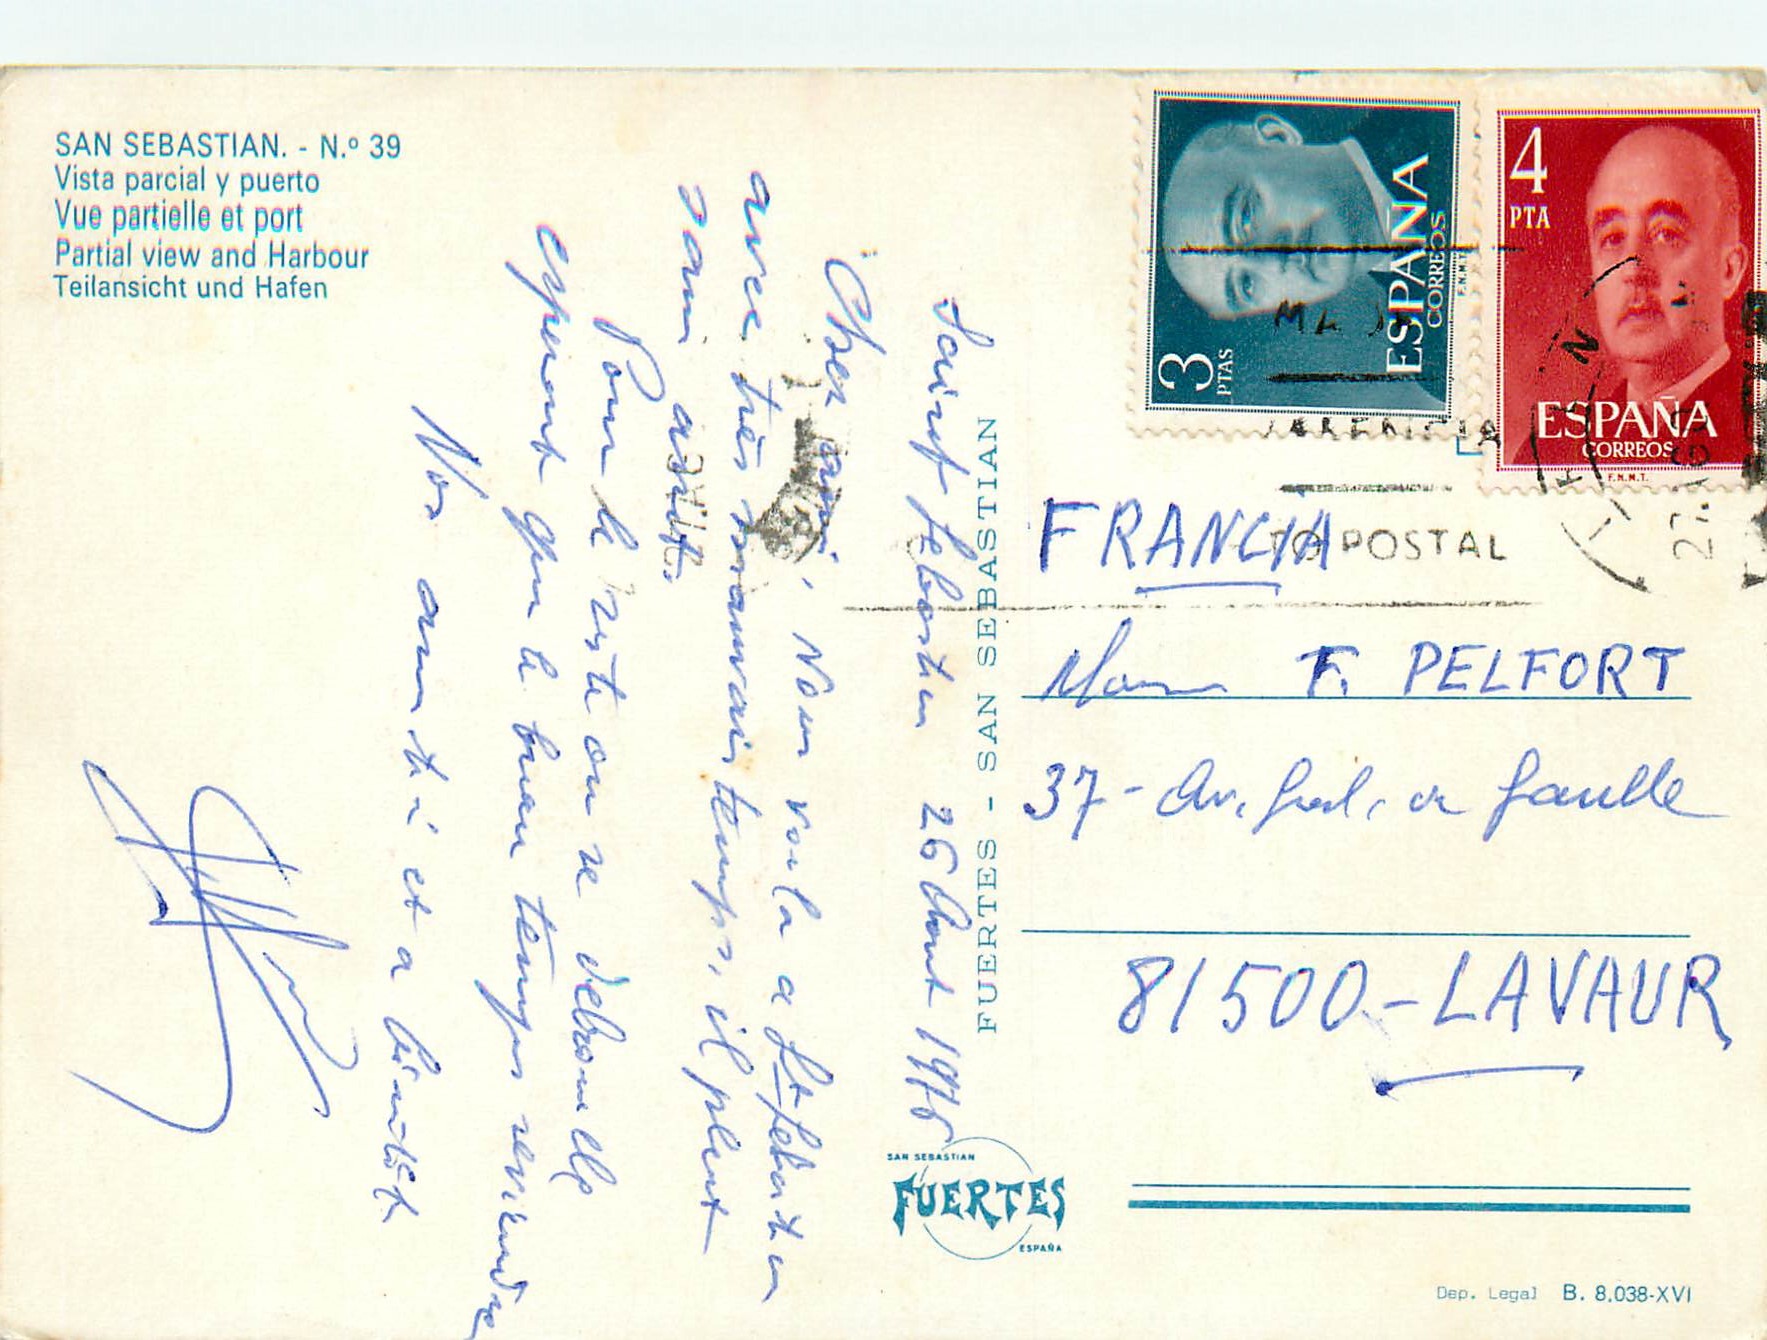 SAN SEBASTIAN. - N.º 39
Vista parcial y puerto
Vue partielle et port
Partial view and Harbour
Teilansicht und Hafen
Saint Sebastien 26 Aout 1976
Chers amis, Nous voila a St Sebastien
avec très mauvais temps, il pleut
sans arrêt.
Pour le reste on se debrouille
esperont que le beau temps reviendra
Nos amitié et a bientôt
FUERTES - SAN SEBASTIAN
SAN SEBASTIAN
FUERTES
ESPAÑA
3
PTAS
ESPAÑA
CORREOS
F.N.M.T.
4
PTA
ESPAÑA
CORREOS
F.N.M.T.
TO POSTAL
FRANCIA
F. PELFORT
37 - Av. Gal. de Gaulle
81500 - LAVAUR
Dep. Legal B. 8.038-XVI